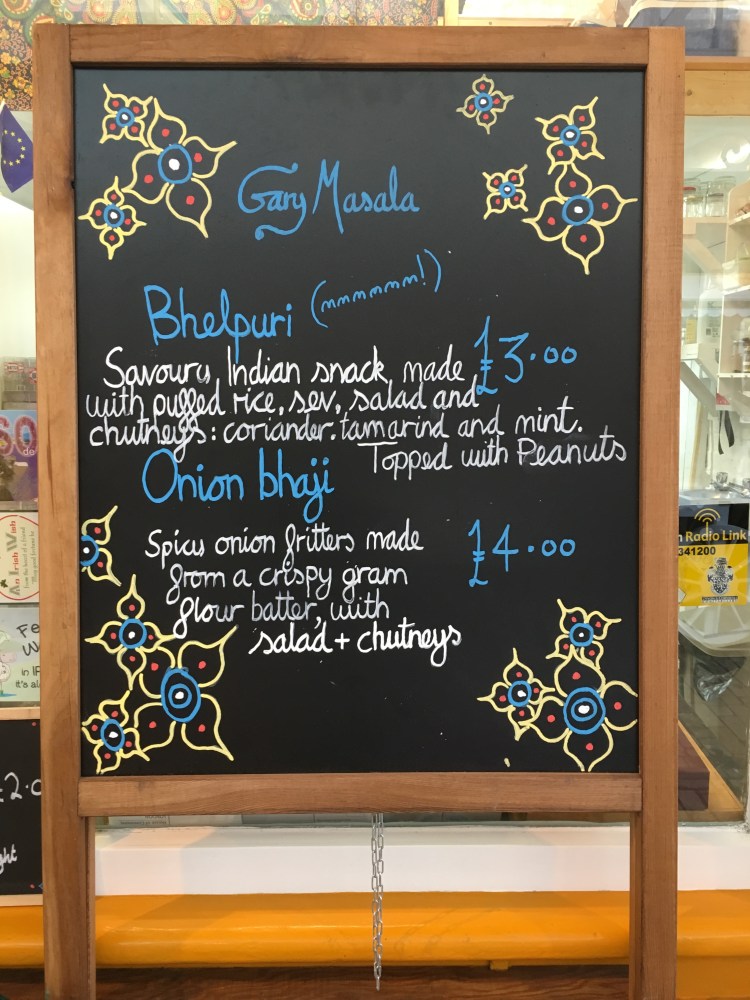 Gary Masala
Bhelpuri (mmmmmm!)
Savoury Indian snack made
£3.00
with puffed rice, sev, salad and
chutneys: coriander, tamarind and mint.
Topped with Peanuts
Onion bhaji
Spicy onion fritters made
£4.00
from a crispy gram
flour batter, with
salad + chutneys
An Irish Wish
Radio Link
341200